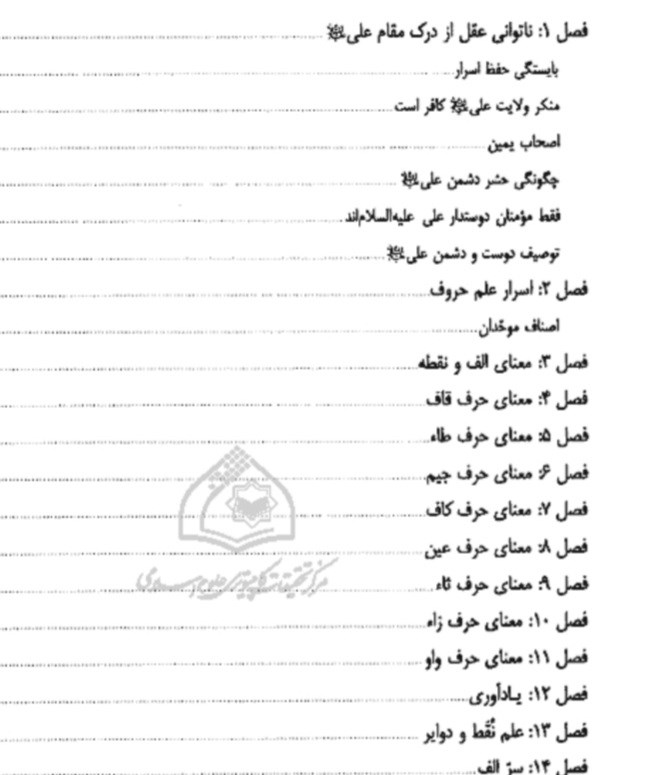 فصل ۱: ناتوانی عقل از درک مقام علی﷤
بایستگی حفظ اسرار
منکر ولایت علی﷤ کافر است
اصحاب یمین
چگونگی حشر دشمن علی﷤
فقط مؤمنان دوستدار علی علیه‌السلام‌اند
توصیف دوست و دشمن علی﷤
فصل ۲: اسرار علم حروف
اصناف موحّدان
فصل ۳: معنای الف و نقطه
فصل ۴: معنای حرف قاف
فصل ۵: معنای حرف طاء
فصل ۶: معنای حرف جیم
فصل ۷: معنای حرف کاف
فصل ۸: معنای حرف عین
مرکز تحقیقات کامپیوتری علوم اسلامی
فصل ۹: معنای حرف ثاء
فصل ۱۰: معنای حرف زاء
فصل ۱۱: معنای حرف واو
فصل ۱۲: یادآوری
فصل ۱۳: علم نُقَط و دوایر
فصل ۱۴: سرّ الف